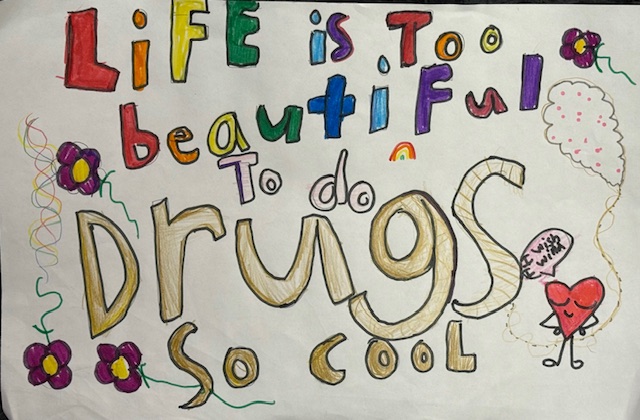 LiFE is Too
beautiful
To do
Drugs
So cool